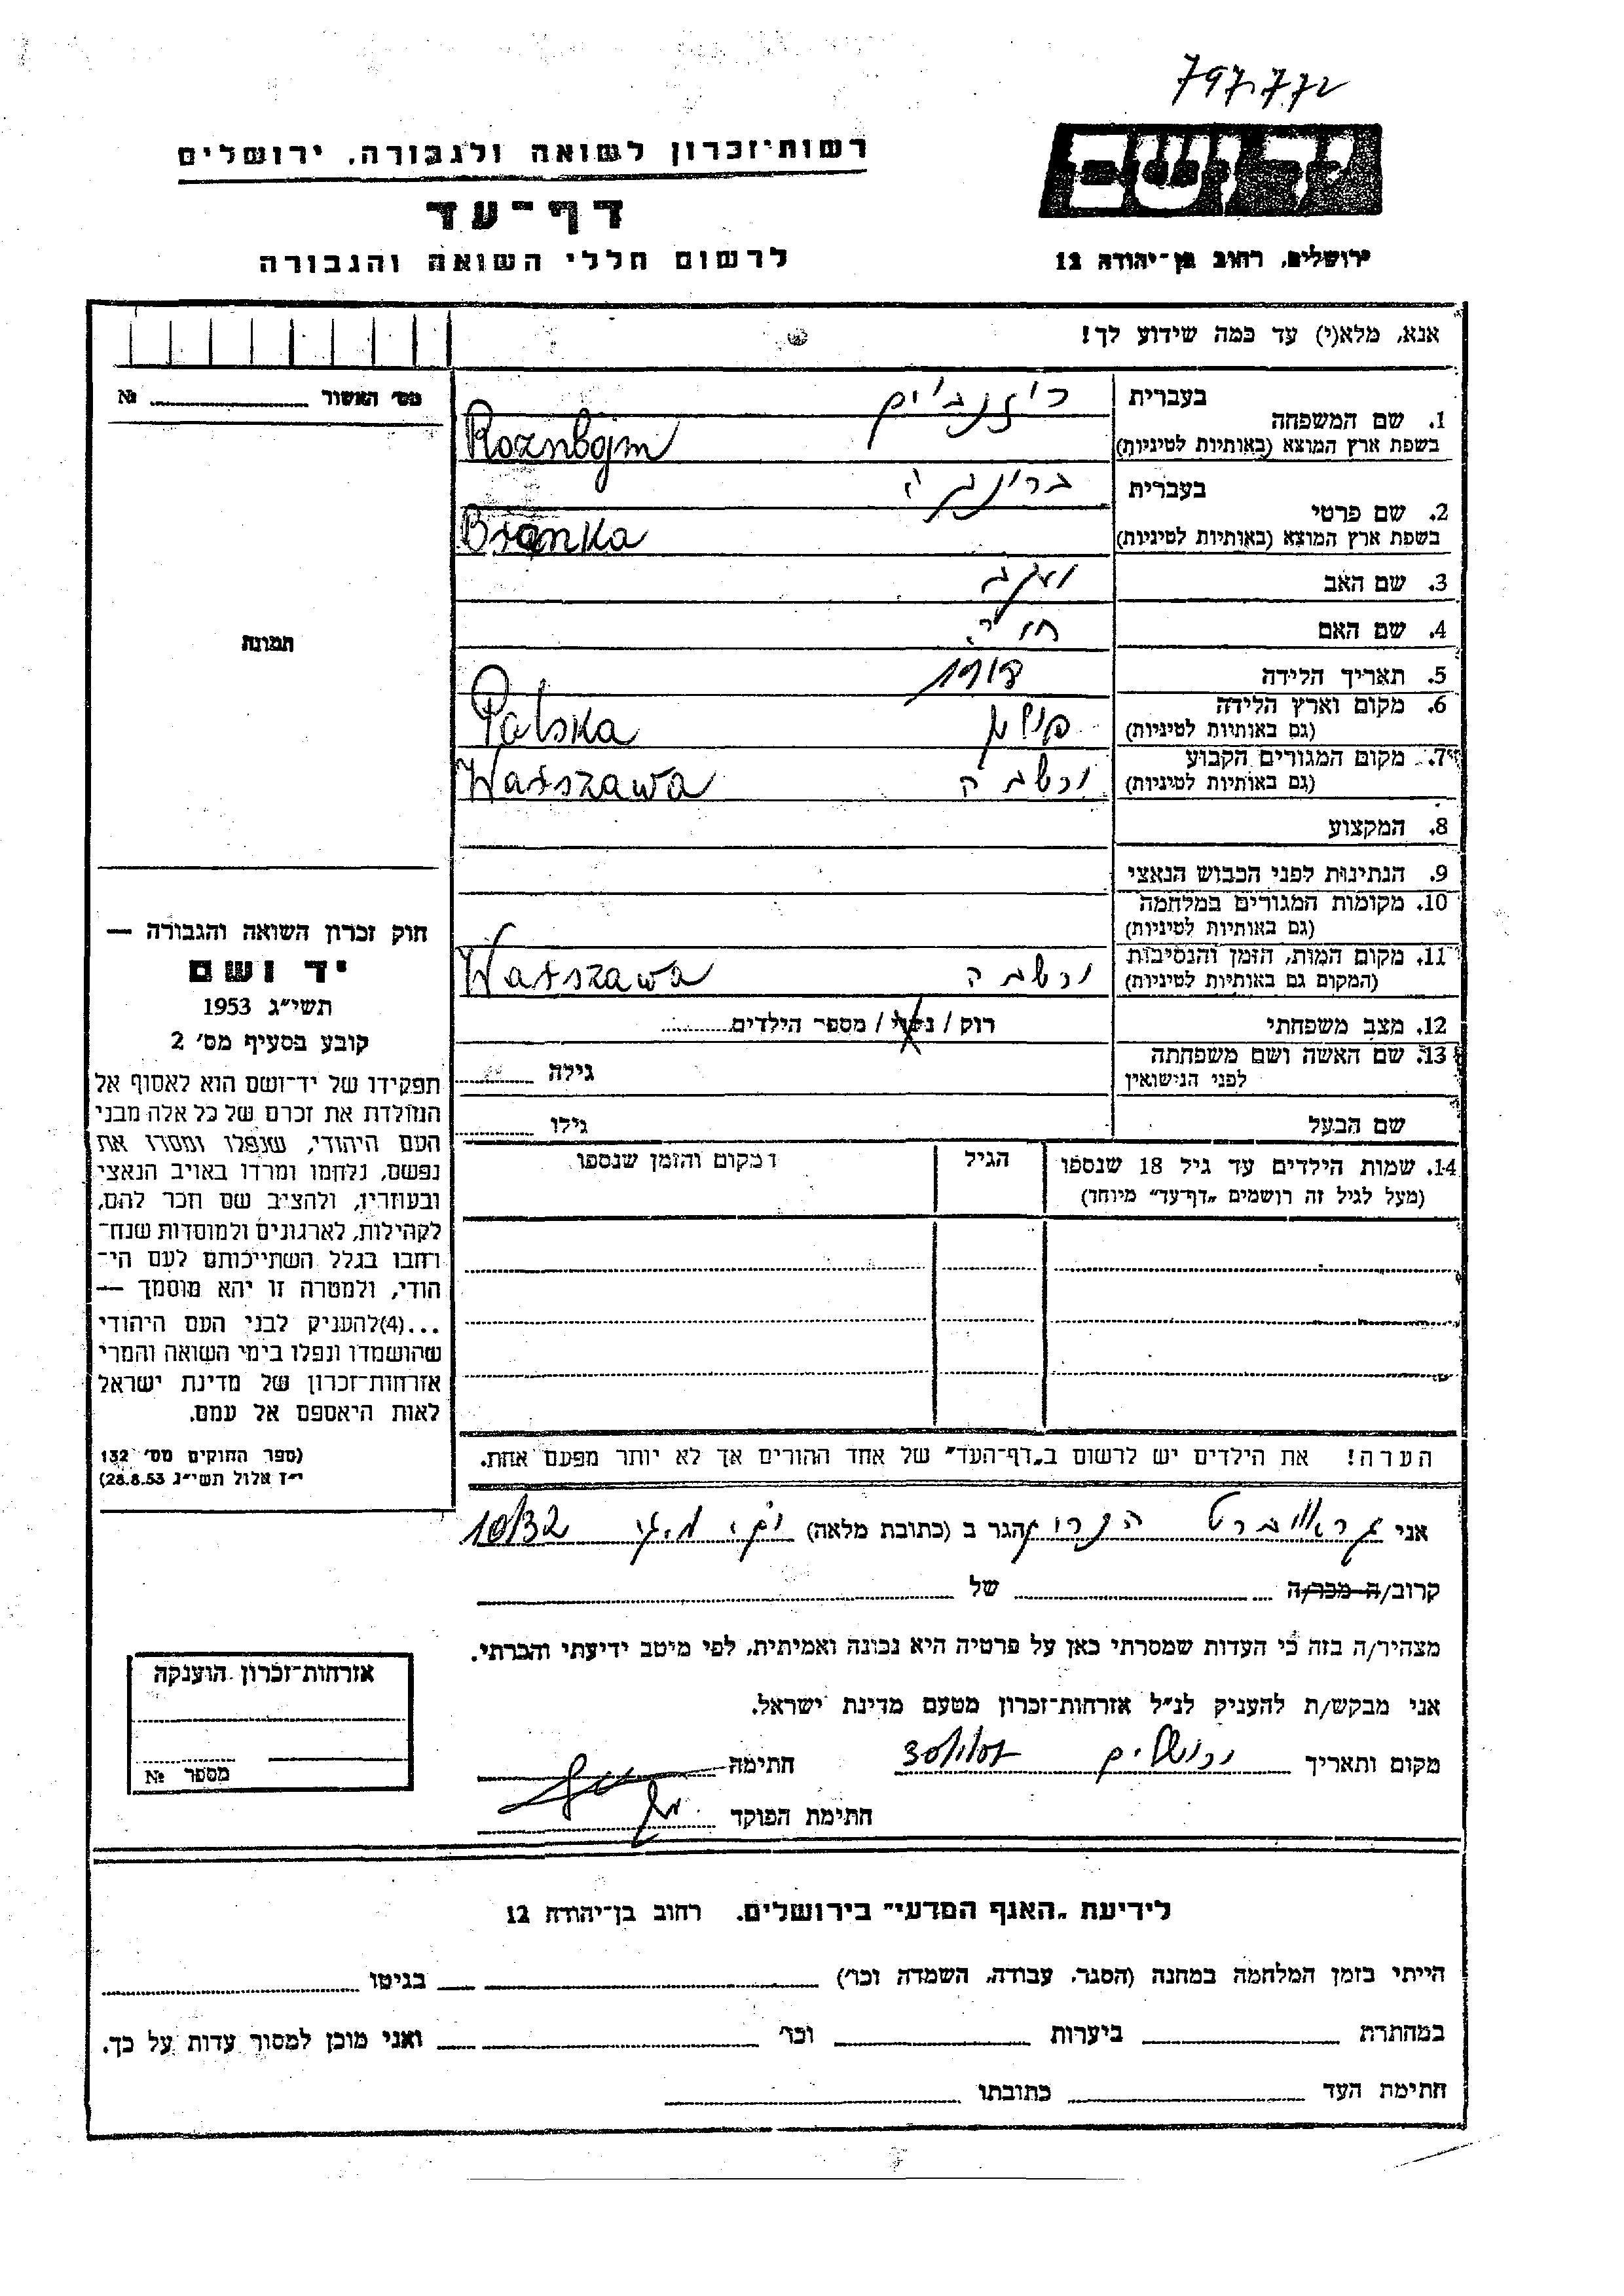 797.772
יד ושם
רשות־זכרון לשואה ולגבורה, ירושלים
דף־עד
לרשום חללי השואה והגבורה
ירושלים, רחוב בן־יהודה 12
אנא, מלא(י) עד כמה שידוע לך!
מס׳ האשור № ........
1. שם המשפחה
בעברית
בשפת ארץ המוצא (באותיות לטיניות)
Roznbojm
2. שם פרטי
בעברית ברונקה
בשפת ארץ המוצא (באותיות לטיניות)
Bronka
3. שם האב
4. שם האם
תמונה
5. תאריך הלידה
6. מקום וארץ הלידה
(גם באותיות לטיניות)
פולין Polska
7. מקום המגורים הקבוע
(גם באותיות לטיניות)
ורשבה Warszawa
8. המקצוע
9. הנתינות לפני הכבוש הנאצי
10. מקומות המגורים במלחמה
(גם באותיות לטיניות)
11. מקום המות, הזמן והנסיבות
(המקום גם באותיות לטיניות)
ורשבה Warszawa
12. מצב משפחתי
רוק / נשוי / מספר הילדים........
13. שם האשה ושם משפחתה
לפני הנישואין
גילה ........
שם הבעל
גילו ........
14. שמות הילדים עד גיל 18 שנספו
(מעל לגיל זה רושמים „דף־עד״ מיוחד)
הגיל
המקום והזמן שנספו
חוק זכרון השואה והגבורה —
יד ושם
תשי״ג 1953
קובע בסעיף מס׳ 2
תפקידו של יד־ושם הוא לאסוף אל
המולדת את זכרם של כל אלה מבני
העם היהודי, שנפלו ומסרו את
נפשם, נלחמו ומרדו באויב הנאצי
ובעוזריו, ולהציב שם וזכר להם,
לקהילות, לארגונים ולמוסדות שנח־
רחבו בגלל השתייכותם לעם הי־
הודי, ולמטרה זו יהא מוסמך —
...(4)להעניק לבני העם היהודי
שהושמדו ונפלו בימי השואה והמרי
אזרחות־זכרון של מדינת ישראל
לאות היאספם אל עמם.
(ספר החוקים מס׳ 132
י״ז אלול תשי״ג 28.8.53)
הערה! את הילדים יש לרשום ב„דף־העד״ של אחד ההורים אך לא יותר מפעם אחת.
אני הגר ב (כתובת מלאה) 10/32
קרוב/ה מכר/ה ........ של ........
מצהיר/ה בזה כי העדות שמסרתי כאן על פרטיה היא נכונה ואמיתית, לפי מיטב ידיעתי והכרתי.
אני מבקש/ת להעניק לנ״ל אזרחות־זכרון מטעם מדינת ישראל.
מקום ותאריך ירושלים חתימה
חתימת הפוקד
אזרחות־זכרון הוענקה
מספר №
לידיעת „האגף המדעי״ בירושלים. רחוב בן־יהודה 12
הייתי בזמן המלחמה במחנה (הסגר, עבודה, השמדה וכו׳) ........ בגיטו ........
במחתרת ........ ביערות ........ וכו׳ ........ ואני מוכן למסור עדות על כך.
חתימת העד ........ כתובתו ........